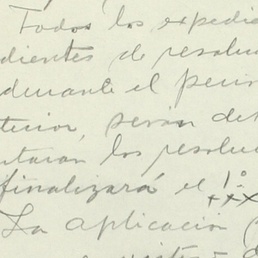 Todos los expedie
dientes de resoluc
durante el perio
terior, serán de
utarán los resoluc
finalizará el 1º
xxx
La aplicación (